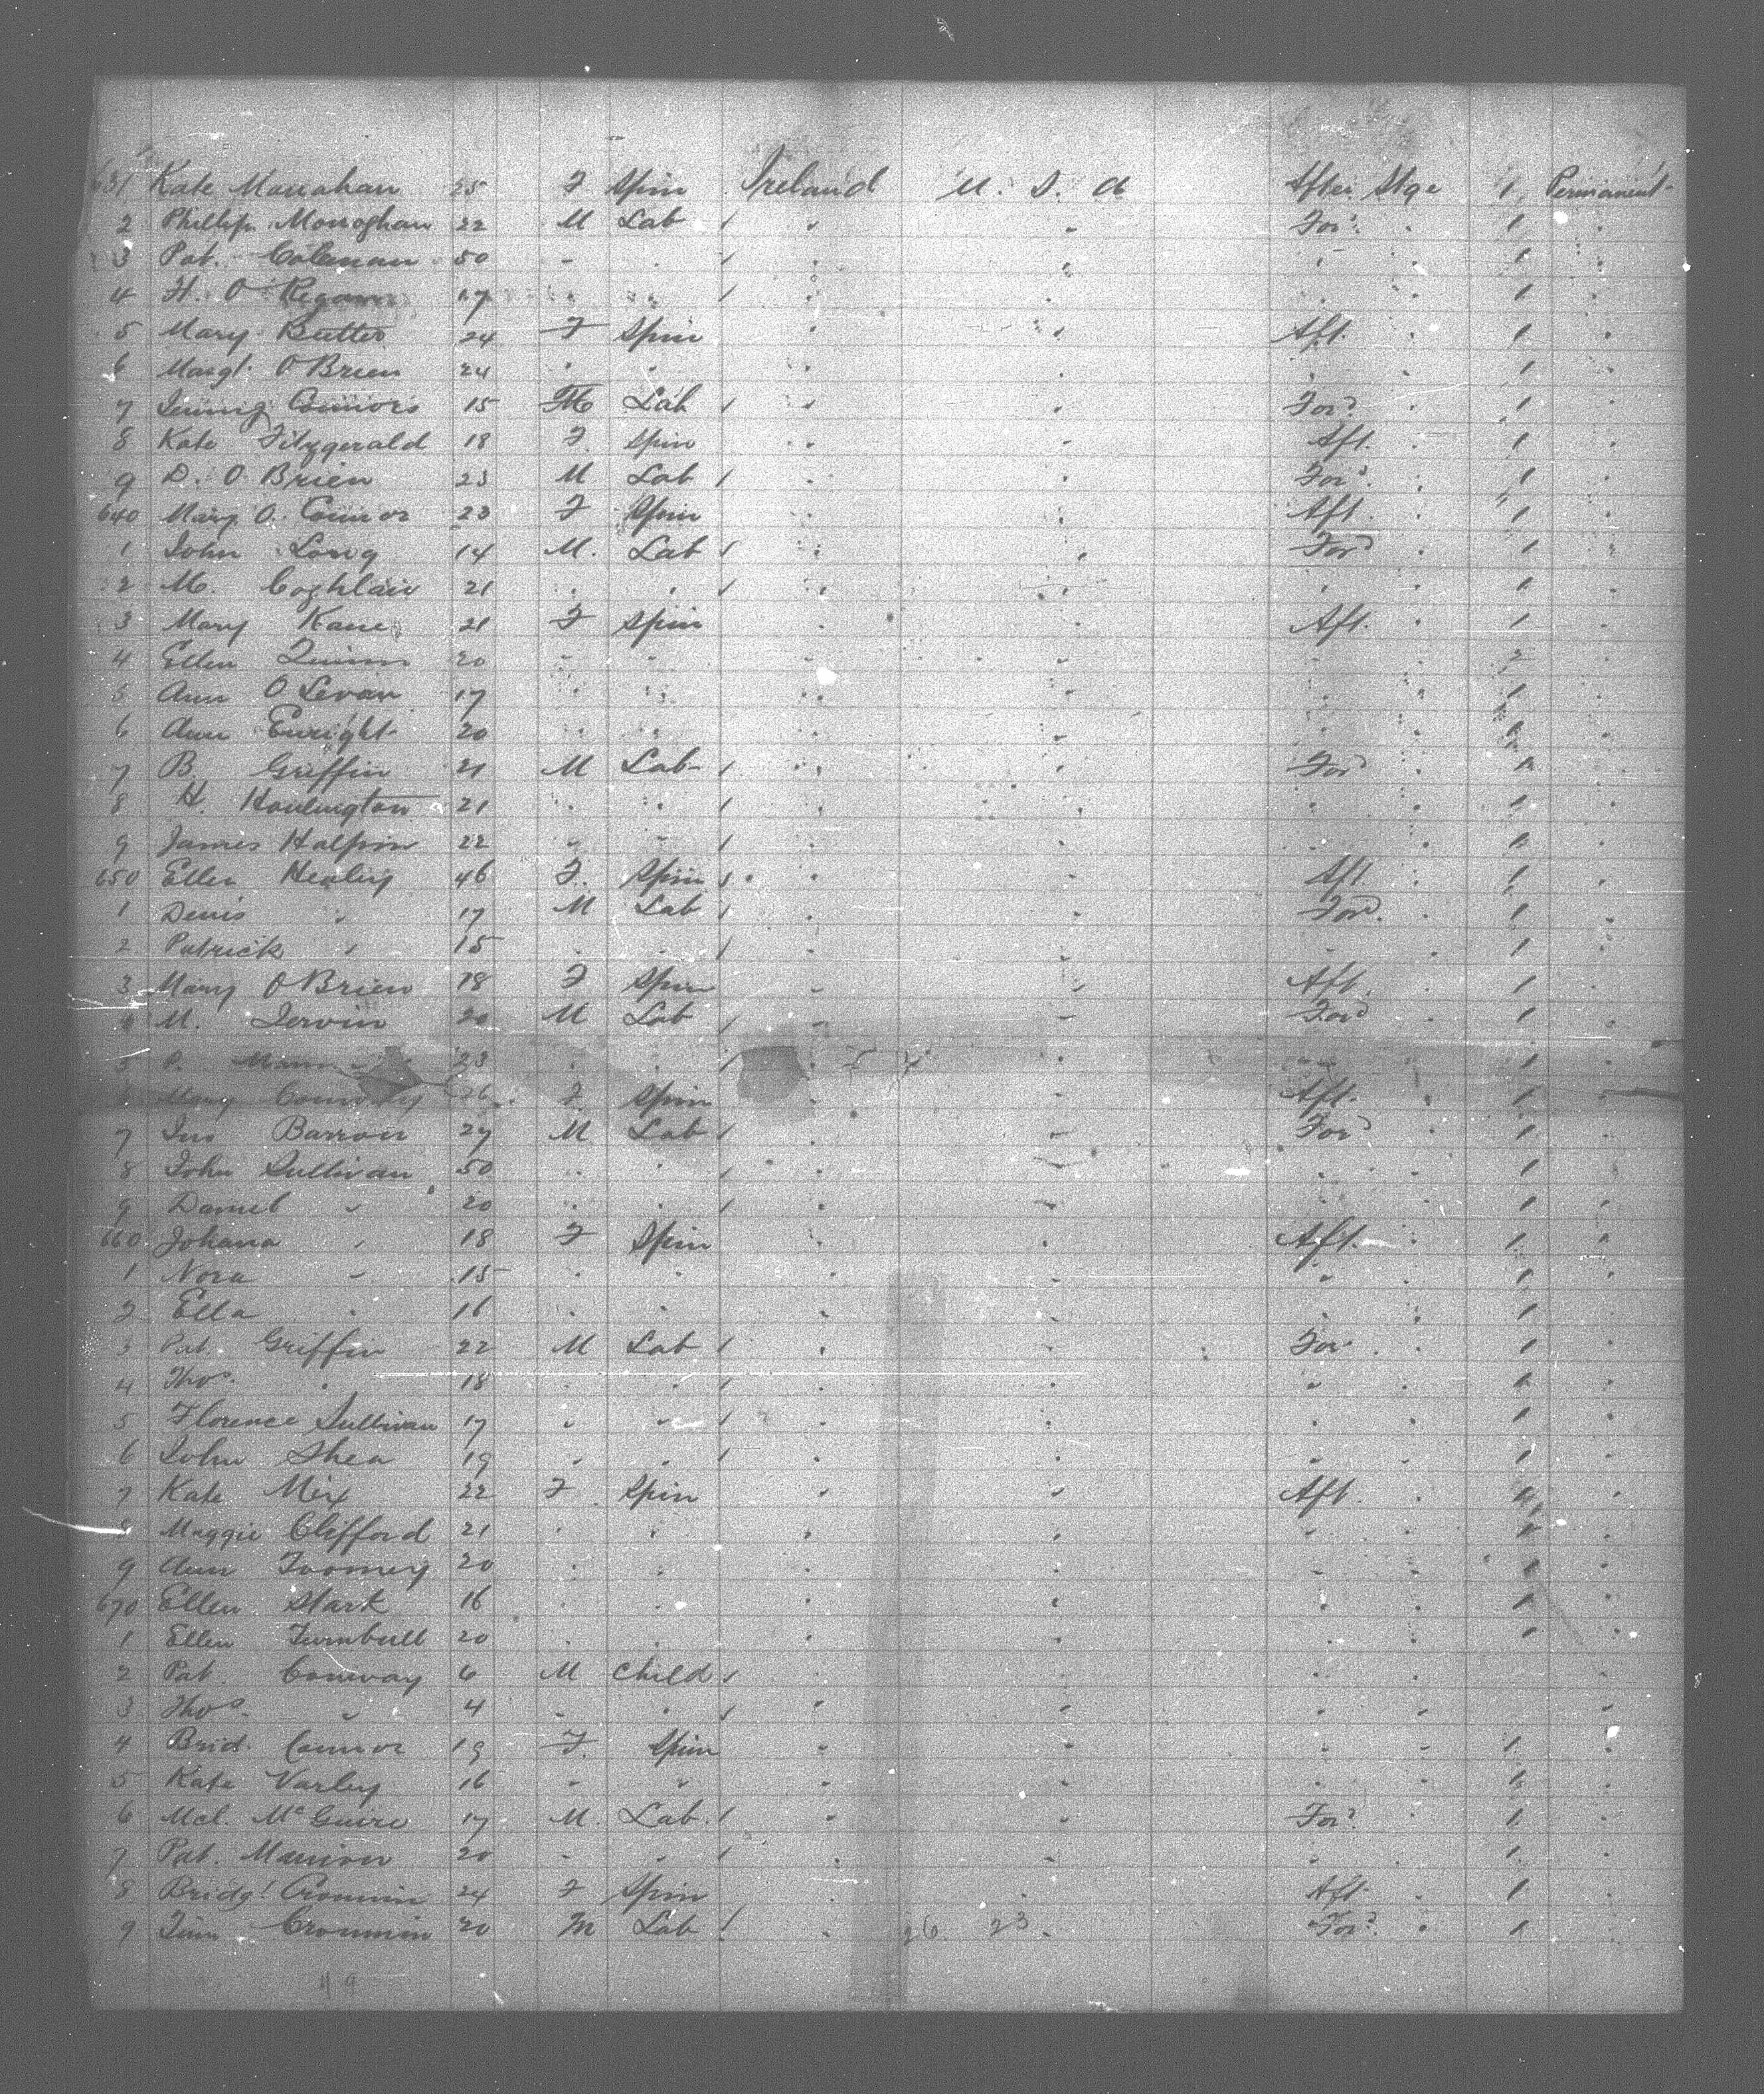 631 Kate Monahan 25 F Spin Ireland U. S. A After Stge 1 Permanent
2 Phillip Monoghan 22 M Lab 1 " " For'd " 1 "
3 Pat. Coleman 50 " " 1 " " " " 1 "
4 H. O Regan 17 " " 1 " " " " 1 "
5 Mary Butler 24 F Spin " " Aft. " 1 "
6 Margt. O Brien 24 " " " " " " 1 "
7 Connors 15 M Lab 1 " " For'd " 1 "
8 Kate Fitzgerald 18 F Spin " " Aft. " 1 "
9 D. O Brien 23 M Lab 1 " " For'd " 1 "
640 Mary O. Connor 23 F Spin " " Aft. " 1 "
1 John Long 14 M. Lab 1 " " For'd " 1 "
2 M. Coghlan 21 " " 1 " " " " 1 "
3 Mary Kane 21 F Spin " " Aft. " 1 "
4 Ellen Quinn 20 " " " " " " 2 "
5 Ann O Levan 17 " " " " " " 1 "
6 Ann Enright 20 " " " " " " 1 "
7 B. Griffin 21 M Lab 1 " " For'd " 1 "
8 H. 21 " " 1 " " " " 1 "
9 James Halpin 22 " " 1 " " " " 1 "
650 Ellen Healey 46 F. Spin " " Aft " 1 "
1 Denis " 17 M Lab 1 " " For'd. " 1 "
2 Patrick " 15 " " 1 " " " " 1 "
3 Mary O Brien 18 F Spin " " Aft. " 1 "
4 M. 20 M Lab 1 " " For'd " 1 "
5 P. 23 " " 1 " " " " 1 "
Mary 26 F. Spin " " Aft. " 1 "
7 Jno Barron 27 M Lab 1 " " For'd " 1 "
8 John Sullivan 50 " " 1 " " " " 1 "
9 Daniel " 20 " " 1 " " " " 1 "
660 Johana " 18 F Spin " " Aft. " 1 "
1 Nora " 15 " " " " " " 1 "
2 Ella " 16 " " " " " " 1 "
3 Pat. Griffin 22 M Lab 1 " " For " 1 "
4 Thos. " 18 " " 1 " " " " 1 "
5 Florence Sullivan 17 " " 1 " " " " 1 "
6 John Shea 19 " " 1 " " " " 1 "
7 Kate Mix 22 F Spin " " Aft. " 1 "
8 Maggie Clifford 21 " " " " " " 1 "
9 Ann Toomey 20 " " " " " " 1 "
670 Ellen Stark 16 " " " " " " 1 "
1 Ellen Turnbull 20 " " " " " " 1 "
2 Pat. Conway 6 M Child 1 " " " " "
3 Thos. " 4 " " 1 " " " " "
4 Brid. Connor 19 F. Spin " " " " 1 "
5 Kate Varley 16 " " " " " " 1 "
6 Mcl. McGuire 17 M. Lab. 1 " " For'd " 1 "
7 Pat. Manion 20 " " 1 " " " " 1 "
8 Bridgt Cronnin 24 F Spin " " Aft. " 1 "
9 Tim Cronnin 20 M Lab 1 " 26 23 " For'd " 1 "
49